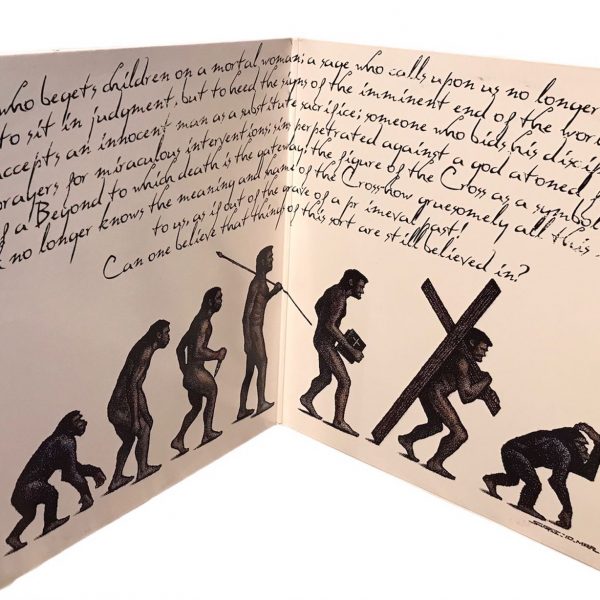 who begets children on a mortal woman; a sage who calls upon us no longer
to sit in judgment, but to heed the signs of the imminent end of the wor
accepts an innocent man as a substitute sacrifice; someone who bids his discip
prayers for miraculous interventions; sins perpetrated against a god atoned f
f a Beyond to which death is the gateway; the figure of the Cross as a symbol
no longer knows the meaning and shame of the Cross how gruesomely all this
to us, as if out of the grave of a primeval past!
Can one believe that things of this sort are still believed in?